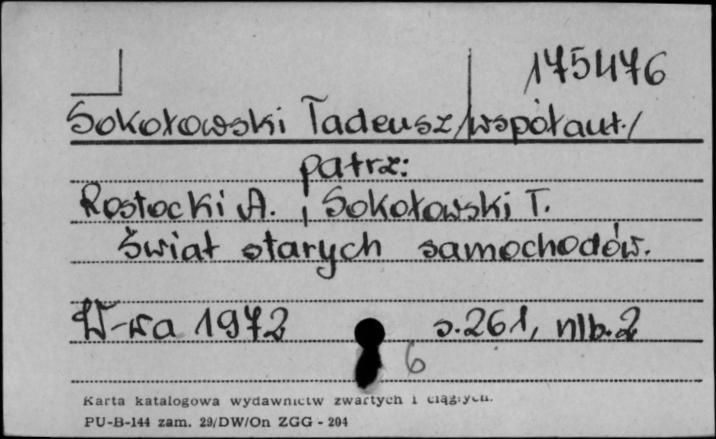 175476
Sokołowski Tadeusz/współaut./
patrz:
Rostocki A., Sokołowski T.
Świat starych samochodów.
W-wa 1972 s.261, nlb.2
6
Karta katalogowa wydawnictw zwartych i ciągłych.
PU-B-144 zam. 29/DW/On ZGG - 204